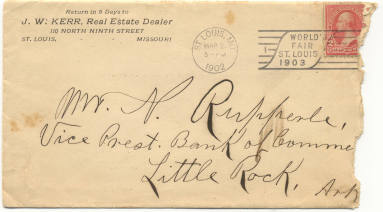 Return in 5 Days to
J. W. KERR, Real Estate Dealer
110 NORTH NINTH STREET
ST. LOUIS, - - MISSOURI
ST. LOUIS, MO.
MAR
1902
WORLD'S
FAIR
ST. LOUIS
1903
Mr. N. Rupperle,
Vice Prest. Bank of Comme
Little Rock,
Ark